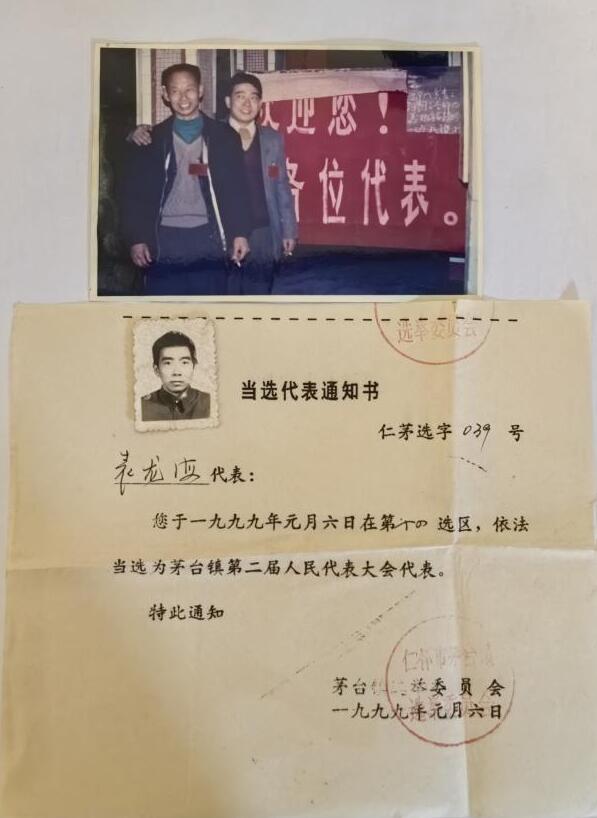 欢迎您！
各位代表。
选举委员会
当选代表通知书
仁茅选字 039 号
袁龙海 代表：
您于一九九九年元月六日在第十四 选区，依法
当选为茅台镇第二届人民代表大会代表。
特此通知
茅台镇选举委员会
一九九九年元月六日